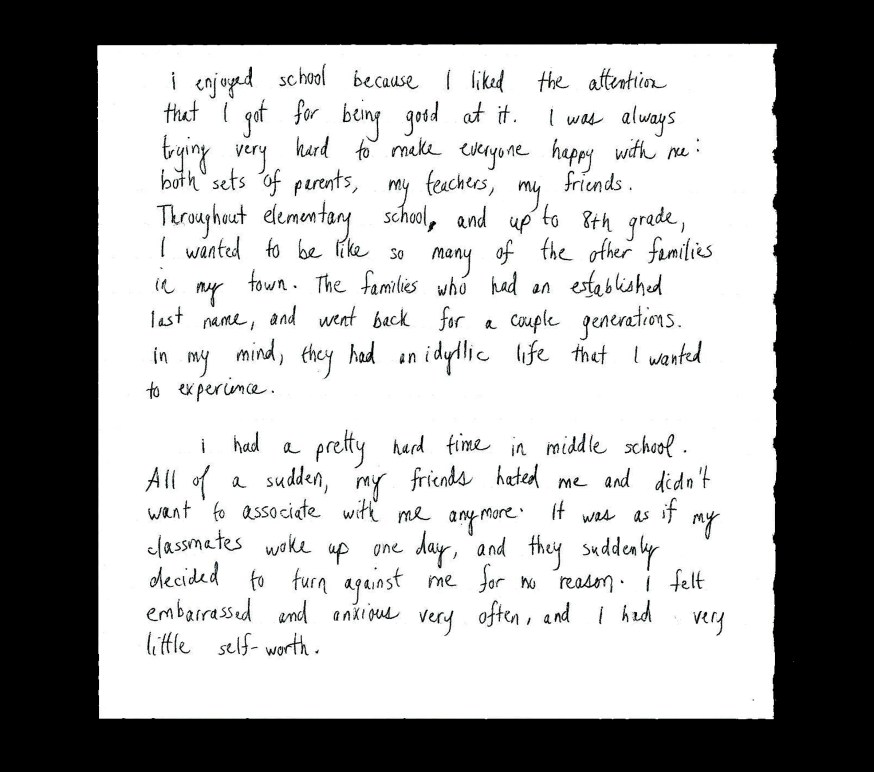 i enjoyed school because I liked the attention
that I got for being good at it. I was always
trying very hard to make everyone happy with me:
both sets of parents, my teachers, my friends.
Throughout elementary school, and up to 8th grade,
I wanted to be like so many of the other families
in my town. The families who had an established
last name, and went back for a couple generations.
in my mind, they had an idyllic life that I wanted
to experience.
i had a pretty hard time in middle school.
All of a sudden, my friends hated me and didn't
want to associate with me anymore. It was as if my
classmates woke up one day, and they suddenly
decided to turn against me for no reason. I felt
embarrassed and anxious very often, and I had very
little self-worth.